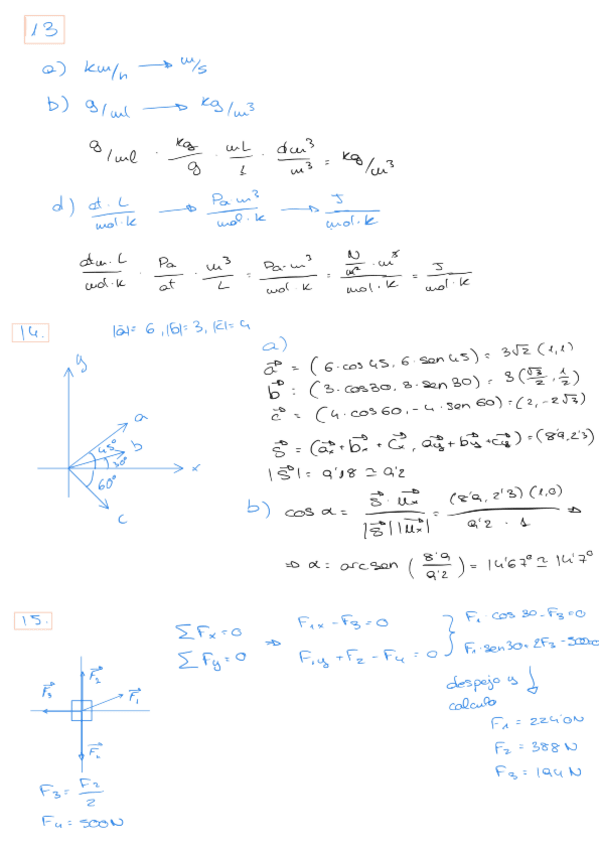 13
a) km/h → m/s
b) g/ml → kg/m³
g/ml · kg/g · mL/L · dm³/m³ = kg/m³
d) at·L/mol·K → Pa·m³/mol·K → J/mol·K
atm·L/mol·K · Pa/at · m³/L = Pa·m³/mol·K = N/m² · m³/mol·K = J/mol·K
14. |a̅|= 6, |b̅|= 3, |c̅|= 4
a)
y
a
b
45°
30°
x
60°
c
a⃗ = (6·cos45, 6·sen45) = 3√2 (1,1)
b⃗ : (3·cos30, 3·sen30) = 3(√3/2, 1/2)
c⃗ = (4·cos60, -4·sen60) = (2, -2√3)
S⃗ = (ax + bx + cx, ay + by + cy) = (8'9, 2'3)
|S⃗| = 9'18 ≃ 9'2
b) cos α = S⃗ · ux⃗ / |S⃗| |ux⃗| = (8'9, 2'3)(1,0) / 9'2 · 1 ⇒
⇒ α = arcsen (8'9/9'2) = 14'67° ≃ 14'7°
15.
ΣFx = 0 ⇒ F1x - F3 = 0
ΣFy = 0 F1y + F2 - F4 = 0
F1·cos30 - F3 = 0
F1·sen30 + 2F3 - 500=0
despejo y
calculo
F1 = 224'0N
F2 = 388 N
F3 = 194 N
F⃗2
F⃗3
F⃗1
F3 = F2/2
F4 = 500N